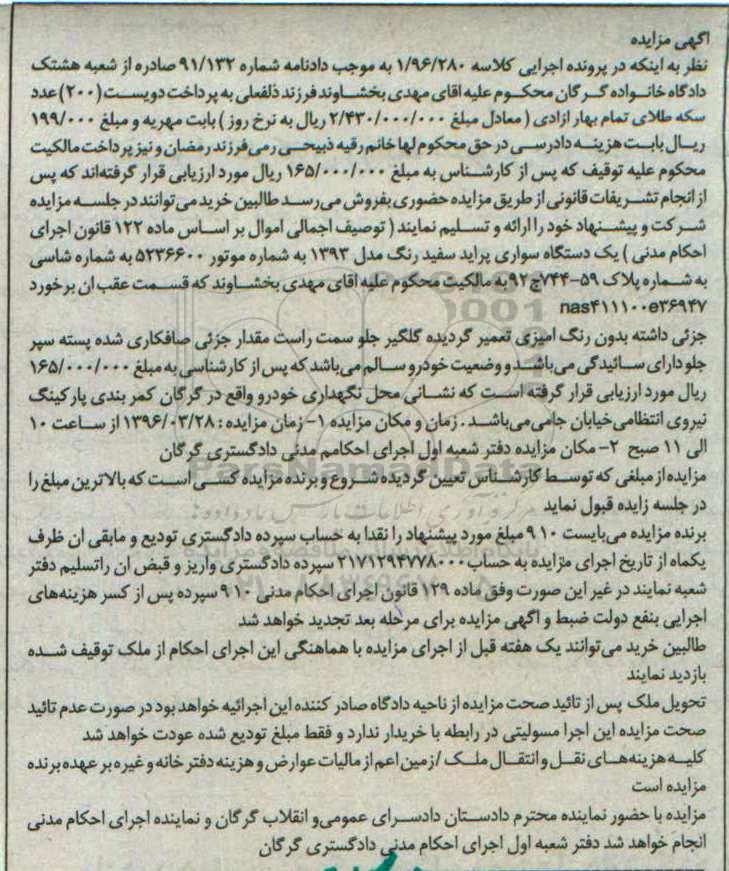 اگهی مزایده
نظر به اینکه در پرونده اجرایی کلاسه ۱/۹۶/۲۸۰ به موجب دادنامه شماره ۹۱/۱۳۲ صادره از شعبه هشتک
دادگاه خانواده گرگان محکوم علیه اقای مهدی بخشاوند فرزند ذلفعلی به پرداخت دویست (۲۰۰) عدد
سکه طلای تمام بهار ازادی ( معادل مبلغ ۲/۴۳۰/۰۰۰/۰۰۰ ریال به نرخ روز ) بابت مهریه و مبلغ ۱۹۹/۰۰۰
ریال بابت هزینه دادرسی در حق محکوم لها خانم رقیه ذبیحی رمی فرزند رمضان و نیز پرداخت مالکیت
محکوم علیه توقیف که پس از کارشناس به مبلغ ۱۶۵/۰۰۰/۰۰۰ ریال مورد ارزیابی قرار گرفته‌اند که پس
از انجام تشریفات قانونی از طریق مزایده حضوری بفروش می‌رسد طالبین خرید می‌توانند در جلسه مزایده
شرکت و پیشنهاد خود را ارائه و تسلیم نمایند ( توصیف اجمالی اموال بر اساس ماده ۱۲۲ قانون اجرای
احکام مدنی ) یک دستگاه سواری پراید سفید رنگ مدل ۱۳۹۳ به شماره موتور ۵۲۳۶۶۰۰ به شماره شاسی
به شماره پلاک ۵۹-۷۴۴ج۹۲ به مالکیت محکوم علیه اقای مهدی بخشاوند که قسمت عقب ان برخورد
nas۴۱۱۱۰۰e۳۶۹۴۷
جزئی داشته بدون رنگ امیزی تعمیر گردیده گلگیر جلو سمت راست مقدار جزئی صافکاری شده پسته سپر
جلو دارای سائیدگی می‌باشد و وضعیت خودرو سالم می‌باشد که پس از کارشناسی به مبلغ ۱۶۵/۰۰۰/۰۰۰
ریال مورد ارزیابی قرار گرفته است که نشانی محل نگهداری خودرو واقع در گرگان کمر بندی پارکینگ
نیروی انتظامی خیابان جامی می‌باشد . زمان و مکان مزایده ۱- زمان مزایده : ۱۳۹۶/۰۳/۲۸ از ساعت ۱۰
الی ۱۱ صبح ۲- مکان مزایده دفتر شعبه اول اجرای احکامم مدنی دادگستری گرگان
مزایده از مبلغی که توسط کارشناس تعیین گردیده شروع و برنده مزایده کسی است که بالاترین مبلغ را
در جلسه زایده قبول نماید
برنده مزایده می‌بایست ۱۰ ۹ مبلغ مورد پیشنهاد را نقدا به حساب سپرده دادگستری تودیع و مابقی ان ظرف
یکماه از تاریخ اجرای مزایده به حساب ۲۱۷۱۲۹۴۷۷۸۰۰۰ سپرده دادگستری واریز و قبض ان راتسلیم دفتر
شعبه نمایند در غیر این صورت وفق ماده ۱۲۹ قانون اجرای احکام مدنی ۱۰ ۹ سپرده پس از کسر هزینه‌های
اجرایی بنفع دولت ضبط و اگهی مزایده برای مرحله بعد تجدید خواهد شد
طالبین خرید می‌توانند یک هفته قبل از اجرای مزایده با هماهنگی این اجرای احکام از ملک توقیف شده
بازدید نمایند
تحویل ملک پس از تائید صحت مزایده از ناحیه دادگاه صادر کننده این اجرائیه خواهد بود در صورت عدم تائید
صحت مزایده این اجرا مسولیتی در رابطه با خریدار ندارد و فقط مبلغ تودیع شده عودت خواهد شد
کلیه هزینه‌های نقل و انتقال ملک / زمین اعم از مالیات عوارض و هزینه دفتر خانه و غیره بر عهده برنده
مزایده است
مزایده با حضور نماینده محترم دادستان دادسرای عمومی و انقلاب گرگان و نماینده اجرای احکام مدنی
انجام خواهد شد دفتر شعبه اول اجرای احکام مدنی دادگستری گرگان
ParsNamadData